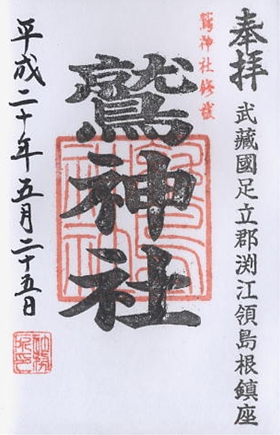 奉拝
武藏國足立郡渕江領島根鎮座
鷲神社
平成二十年五月二十五日